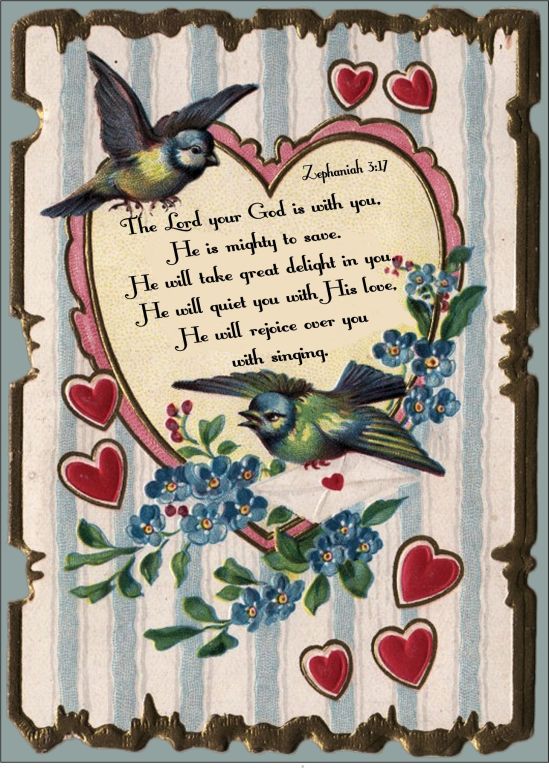 Zephaniah 3:17
The Lord your God is with you,
He is mighty to save.
He will take great delight in you,
He will quiet you with His love,
He will rejoice over you
with singing.